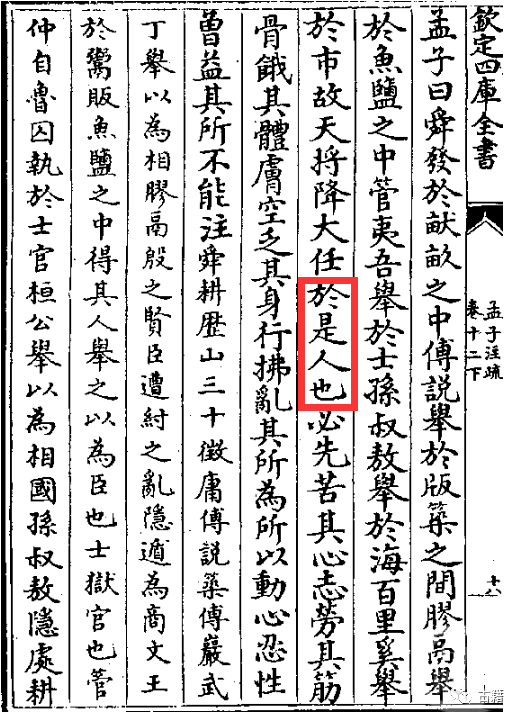 欽定四庫全書
孟子注疏
卷十二下
十八
孟子曰舜發於畎畝之中傅說舉於版築之間膠鬲舉
於魚鹽之中管夷吾舉於士孫叔敖舉於海百里奚舉
於市故天將降大任於是人也必先苦其心志勞其筋
骨餓其體膚空乏其身行拂亂其所為所以動心忍性
曾益其所不能注舜耕歷山三十徵庸傅說築傅巖武
丁舉以為相膠鬲殷之賢臣遭紂之亂隱遁為商文王
於鬻販魚鹽之中得其人舉之以為臣也士獄官也管
仲自魯囚執於士官桓公舉以為相國孫叔敖隱處耕
古籍